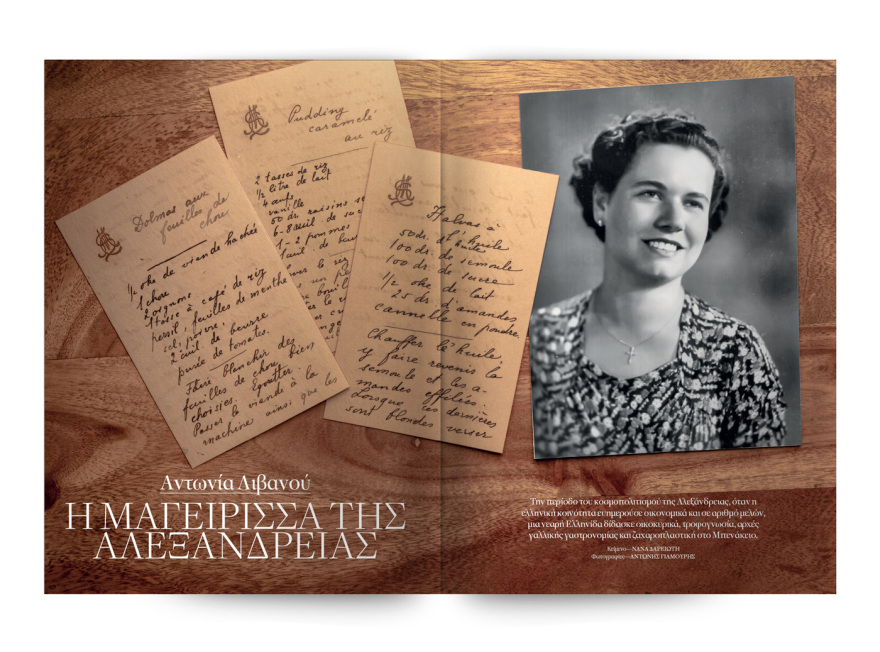 Pudding
caramelé
au riz
2 tasses de riz
½ litre de lait
4 œufs
vanille
50 dr. raisins
1-2 pommes
Dolmas aux
feuilles de
chou
½ oke de viande hachée
1 chou
2 oignons
1 tasse à café de riz
persil, feuilles de menthe
sel, poivre.
2 cuil de beurre
purée de tomates.
Faire blanchir des
feuilles de chou bien
choisies. Egoutter.
Passer la viande à la
machine ainsi que les
Halvas à
l'huile
50 dr. d'huile
100 dr. de semoule
100 dr. de sucre
½ oke de lait
25 dr. d'amandes
cannelle en poudre
Chauffer l'huile,
y faire revenir la
semoule et les a-
mandes effilées.
Lorsque ces dernières
sont blondes verser
Αντωνία Λιβανού
Η ΜΑΓΕΙΡΙΣΣΑ ΤΗΣ
ΑΛΕΞΑΝΔΡΕΙΑΣ
Την περίοδο του κοσμοπολιτισμού της Αλεξάνδρειας, όταν η
ελληνική κοινότητα ευημερούσε οικονομικά και σε αριθμό μελών,
μια νεαρή Ελληνίδα δίδασκε οικοκυρικά, τροφογνωσία, αρχές
γαλλικής γαστρονομίας και ζαχαροπλαστική στο Μπενάκειο.
Κείμενο—ΝΑΝΑ ΔΑΡΕΙΩΤΗ
Φωτογραφίες—ΑΝΤΩΝΗΣ ΓΙΑΜΟΥΡΗΣ